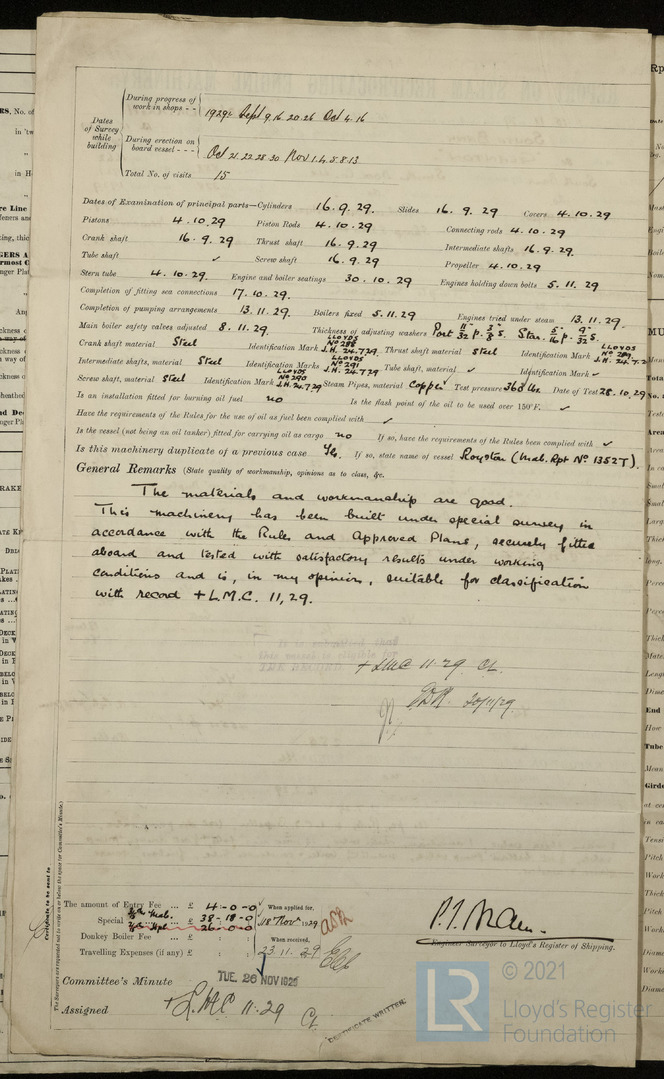 During progress of work in shops - - 1929: Sept 9. 16. 20. 26 Oct 4. 16
Dates of Survey while building
During erection on board vessel - - - Oct 21. 22. 28. 30 Nov 1. 4. 5. 8. 13
Total No. of visits 15
Dates of Examination of principal parts—Cylinders 16. 9. 29. Slides 16. 9. 29 Covers 4. 10. 29
Pistons 4. 10. 29 Piston Rods 4. 10. 29 Connecting rods 4. 10. 29
Crank shaft 16. 9. 29 Thrust shaft 16. 9. 29 Intermediate shafts 16. 9. 29
Tube shaft ✓ Screw shaft 16. 9. 29 Propeller 4. 10. 29
Stern tube 4. 10. 29. Engine and boiler seatings 30. 10. 29 Engines holding down bolts 5. 11. 29
Completion of fitting sea connections 17. 10. 29.
Completion of pumping arrangements 13. 11. 29. Boilers fixed 5. 11. 29 Engines tried under steam 13. 11. 29.
Main boiler safety valves adjusted 8. 11. 29. Thickness of adjusting washers Port 11/32 p. 3/8 s. Star. 5/16 p. 9/32 s.
Crank shaft material Steel Identification Mark LLOYDS No 288 J.H. 24.7.29 Thrust shaft material Steel Identification Mark LLOYDS No 289 J.H. 24.7.2
Intermediate shafts, material Steel Identification Marks LLOYDS No 291 J.H. 24.7.29 Tube shaft, material ✓ Identification Mark ✓
Screw shaft, material Steel Identification Mark LLOYDS No 290 J.H. 24.7.29 Steam Pipes, material Copper Test pressure 360 lbs. Date of Test 28. 10. 29
Is an installation fitted for burning oil fuel no Is the flash point of the oil to be used over 150°F. ✓
Have the requirements of the Rules for the use of oil as fuel been complied with ✓
Is the vessel (not being an oil tanker) fitted for carrying oil as cargo no If so, have the requirements of the Rules been complied with ✓
Is this machinery duplicate of a previous case Yes. If so, state name of vessel Royston (Mab. Rpt No 13527).
General Remarks (State quality of workmanship, opinions as to class, &c.
The materials and workmanship are good.
This machinery has been built under special survey in
accordance with the Rules and Approved Plans, securely fitted
aboard and tested with satisfactory results under working
conditions and is, in my opinion, suitable for classification
with record + L.M.C. 11, 29.
+ LMC 11. 29 CL.
20/11/29
Certificate to be sent to
The Surveyors are requested not to write on or below the space for Committee's Minute.
The amount of Entry Fee ... £ 4 - 0 - 0 When applied for,
Special ... £ 38 - 18 - 0 18 Nov 1929
26 - 0 - 0
Donkey Boiler Fee ... £ : : When received,
Travelling Expenses (if any) £ : : 23. 11. 29
Engineer Surveyor to Lloyd's Register of Shipping.
Committee's Minute TUE. 26 NOV 1929
Assigned + L.M.C 11. 29 CL
CERTIFICATE WRITTEN
LR © 2021
Lloyd's Register
Foundation